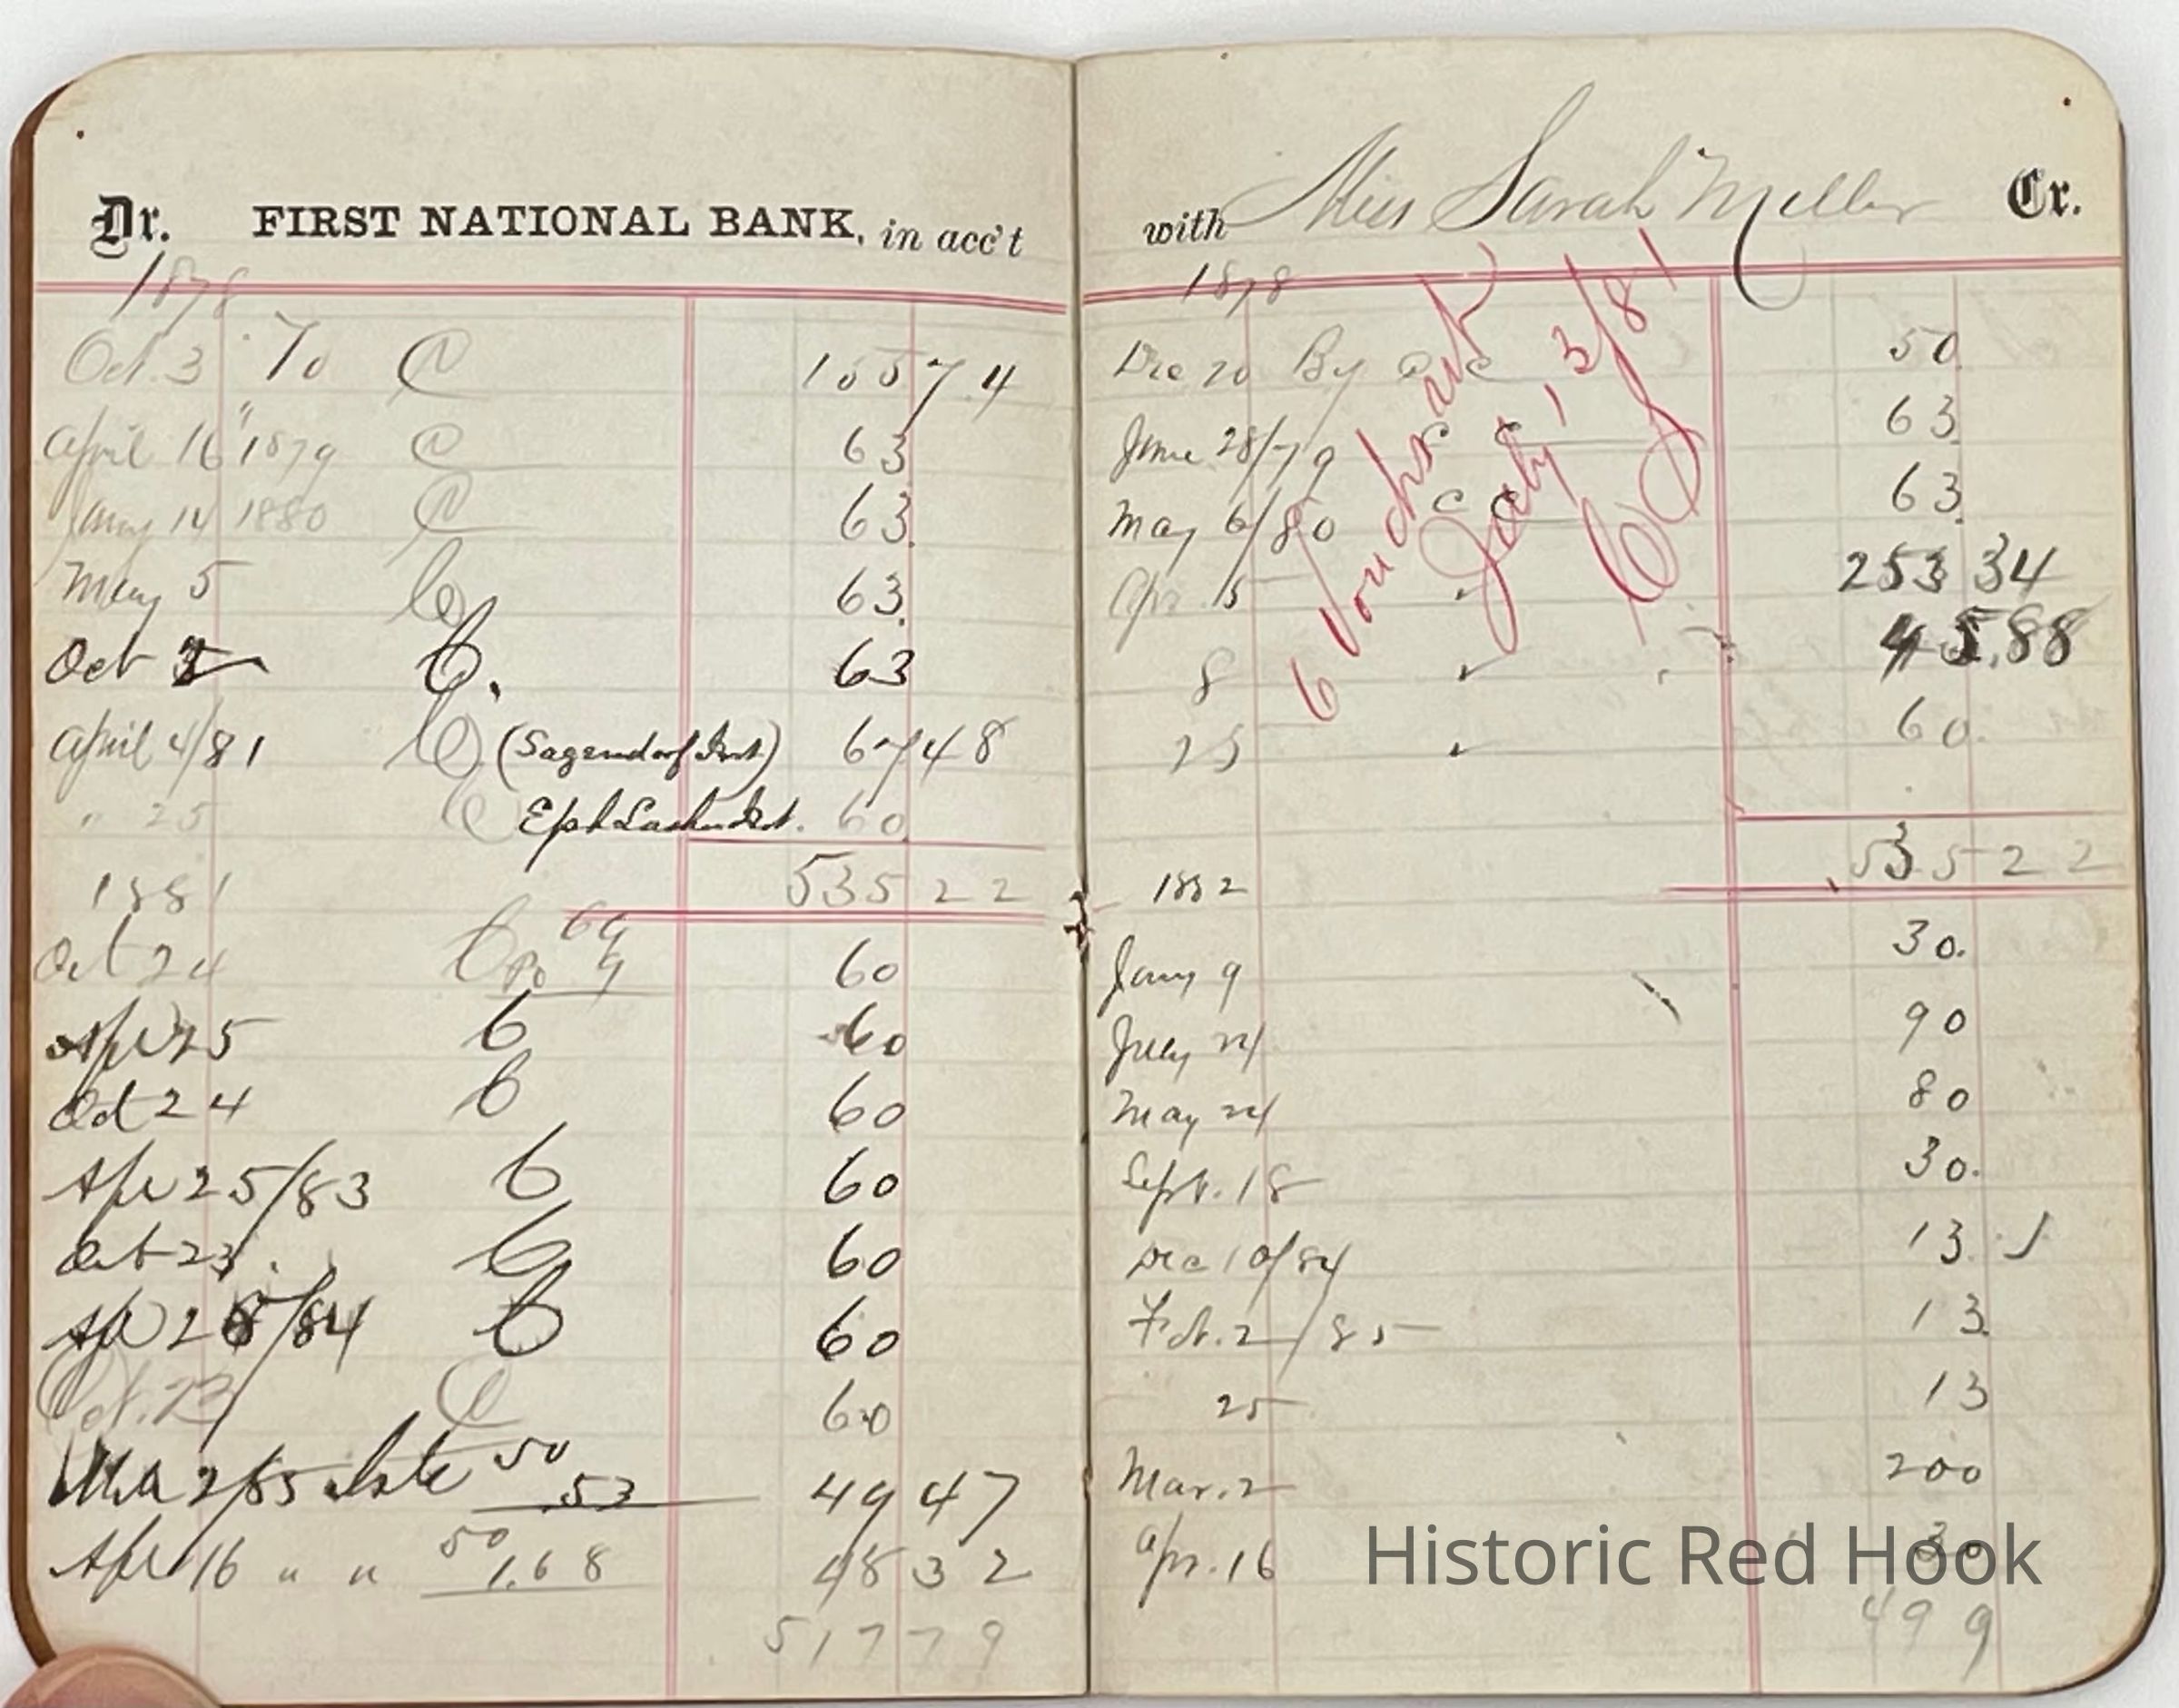 Dr. FIRST NATIONAL BANK, in acc't
1878
Oct. 3 To C 155 74
April 16 " 1879 C 63
Jany 14 1880 C 63.
May 5 C 63.
Oct 2 C. 63
April 4/81 C (Sagendorf Int) 67 48
" 25 C Eph Int. 60
535 22
1881
Oct 24 C 60
Apr 25 C 60
Oct 24 C 60
Apr 25/83 C 60
Oct 23. C 60
Apr 28/84 C 60
Oct. 23 C 60
Mch 2/85 50
.53 49 47
Apr 16 " " 50
1.68 48 32
517 79
with Miss Sarah Miller Cr.
1878
Dec 20 By 50.
June 28/79 63.
May 6/80 63.
Apr. 15 253 34
8 45.88
25 60.
535 22
6 Vouchs out
July 13/81
1882
Jany 9 30.
July 24 90
May 24 80
Sept. 18 30.
Dec 10/84 13.
Feb. 2/85 13.
25 13
Mar. 2 200
Apr. 16 30
499
Historic Red Hook